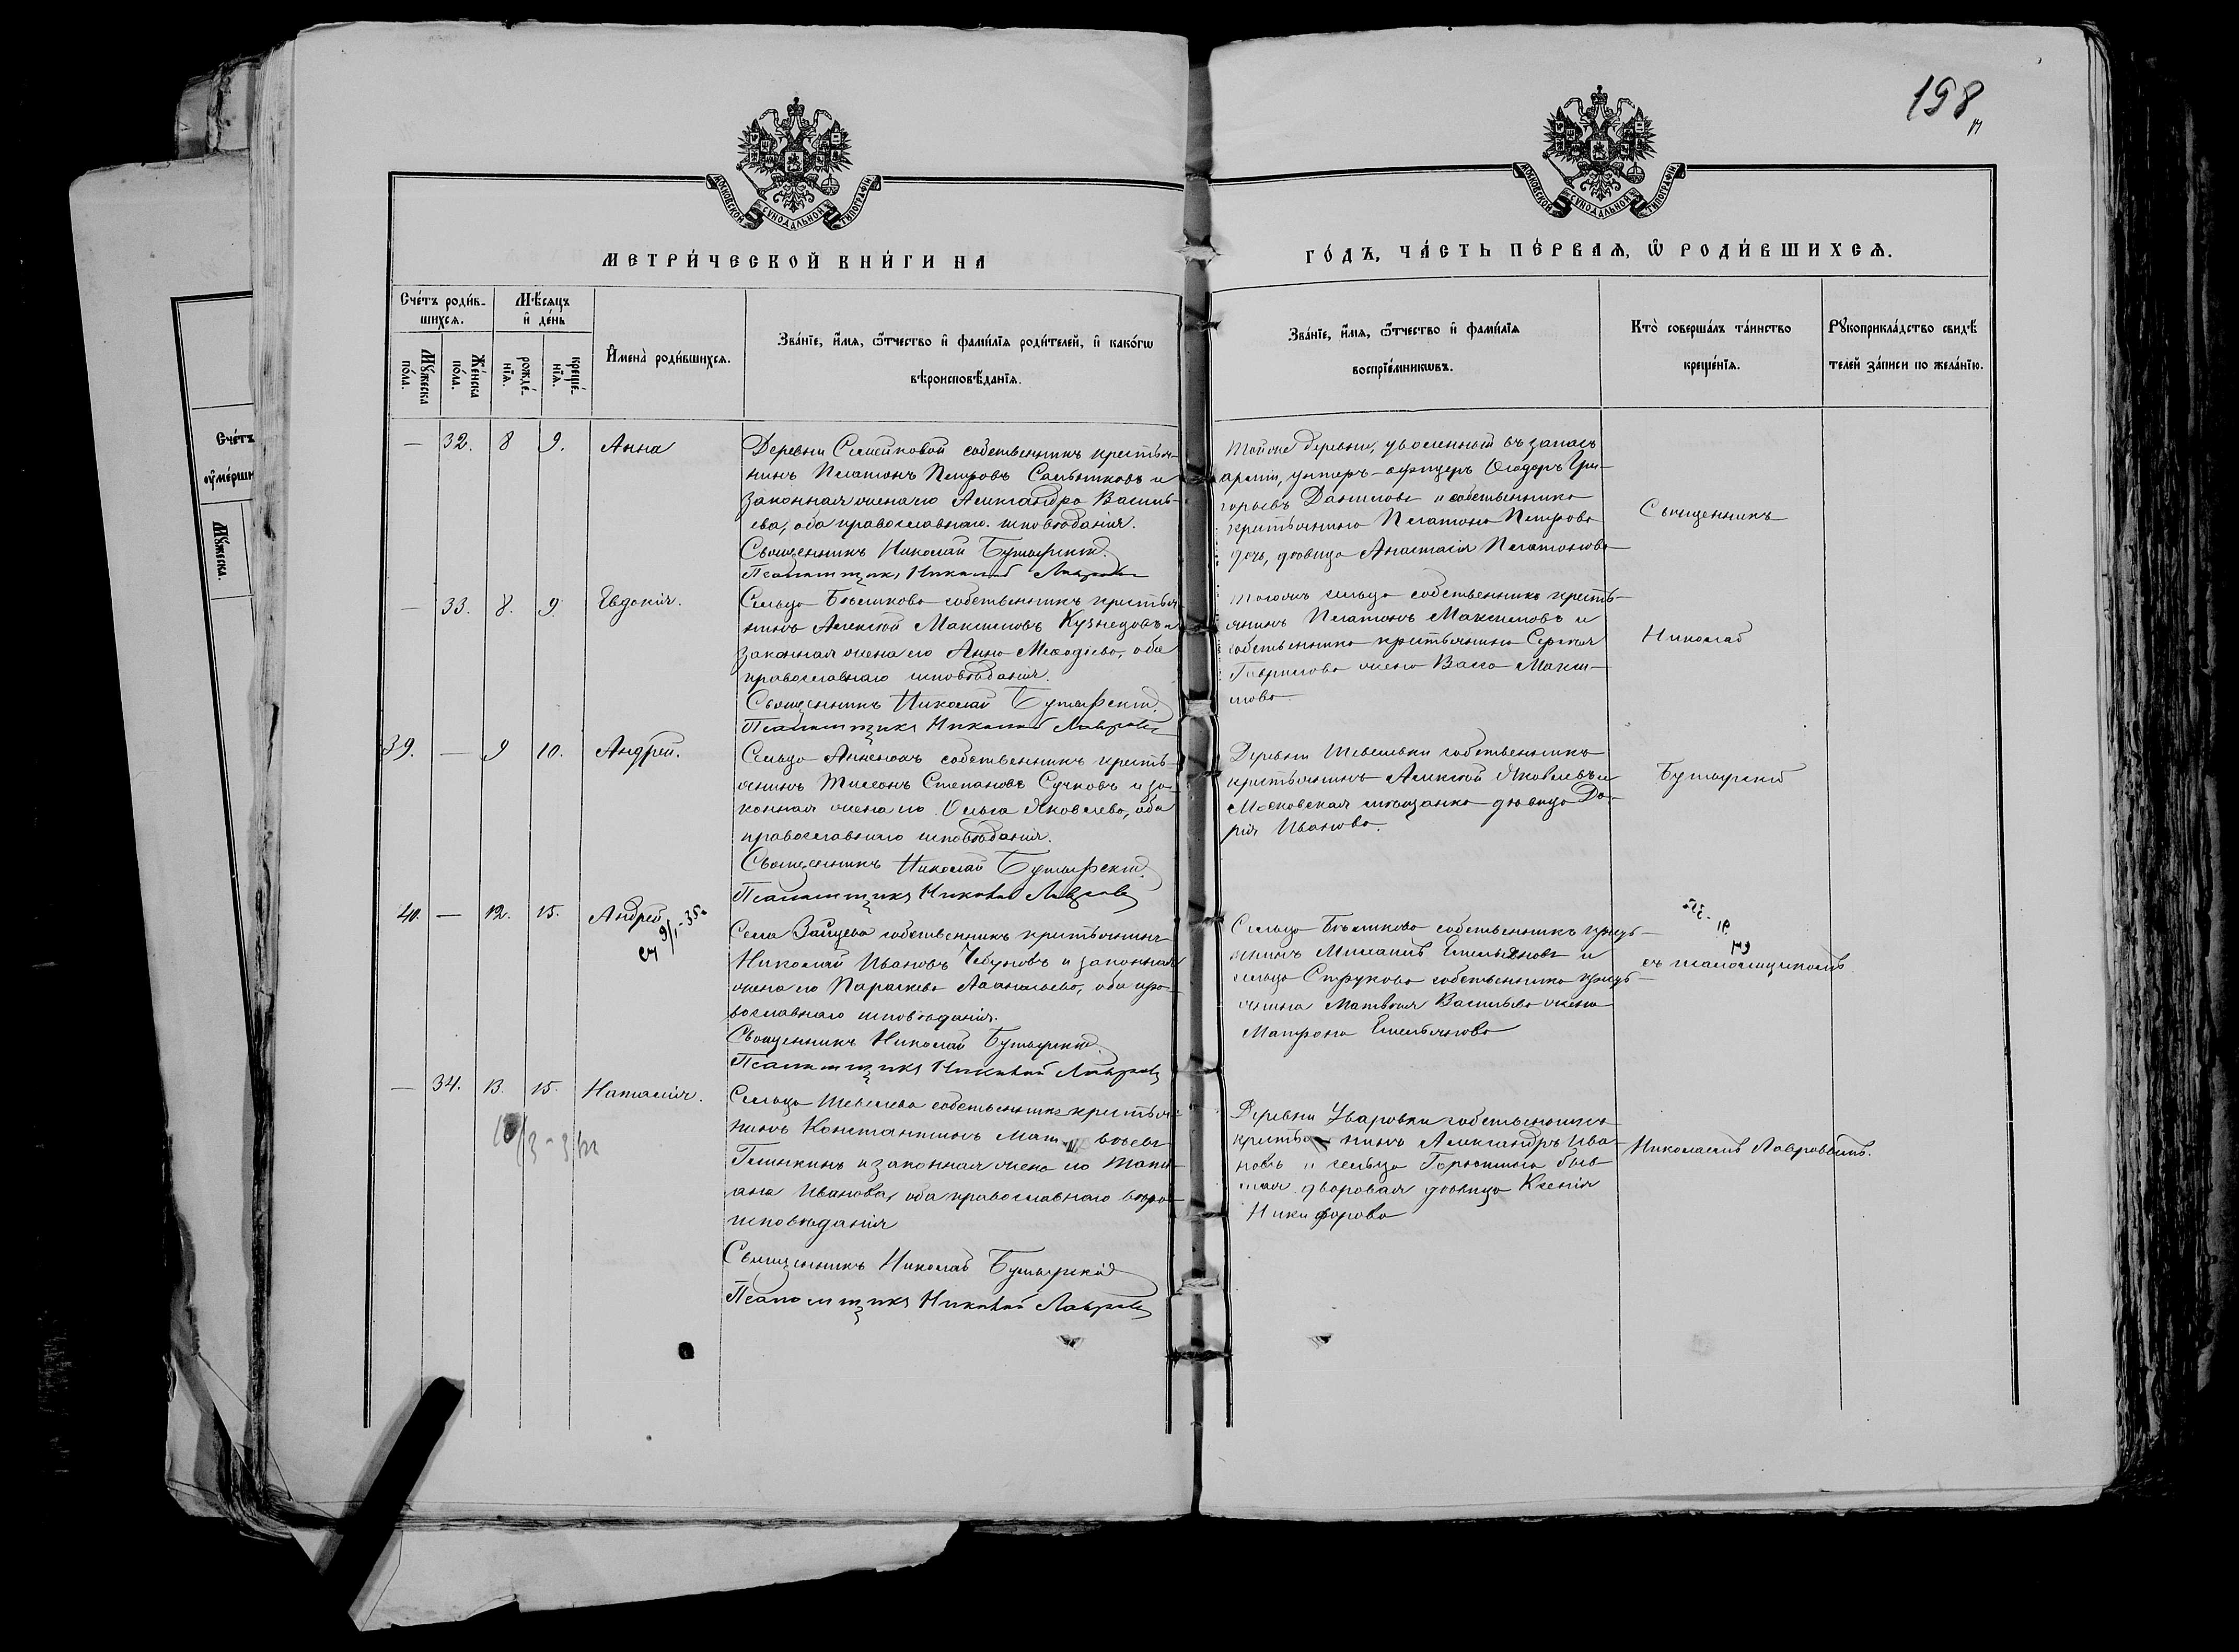 198
МОСКОВСКОЙ СѴНОДАЛЬНОЙ ТИПОГРАФІИ
МОСКОВСКОЙ СѴНОДАЛЬНОЙ ТИПОГРАФІИ
МЕТРИ́ЧЕСКОЙ КНИ́ГИ НА
ГО́ДЪ, ЧА́СТЬ ПЕ́РВАѦ, Ѿ РОДИ́ВШИХСѦ.
Сче́тъ роди́в-
шихсѧ.
Мѣ́сѧцъ
и҆ де́нь
Мꙋ́жеска
по́ла.
Же́нска
по́ла.
рожде́-
нїѧ.
креще́-
нїѧ.
И҆мена̀ роди́вшихсѧ.
Зва́нїе, и҆́мѧ, ѻ҆́тчество и҆ фами́лїѧ роди́телей, и҆ како́гѡ
вѣроисповѣ́данїѧ.
Зва́нїе, и҆́мѧ, ѻ҆́тчество и҆ фами́лїѧ
воспрїе́мникѡвъ.
Кто̀ соверша́лъ та́инство
креще́нїѧ.
Рꙋкоприкла́дство свидѣ́-
телей за́писи по жела́нїю.
Сче́тъ
ᲂу҆ме́рши
Мꙋ́жеска.
— 32. 8 9. Анна
Деревни Семейковой собственникъ крестья-
нинъ Платонъ Петровъ и
законная жена его Александра Василь-
ева, оба православнаго исповѣданія.
Священникъ Николай Бутырскій.
Псаломщикъ Николай Лавровъ
Тойже деревни, уволенный въ запасъ
арміи, унтеръ-офицеръ Ѳеодоръ Гри-
горьевъ Даниловъ и собственника
крестьянина Платона Петрова
дочь, дѣвица Анастасія Платонова
Священникъ
— 33. 8. 9. Евдокія.
Сельца Бѣликова собственникъ крестья-
нинъ Алексѣй Максимовъ Кузнецовъ и
законная жена его Анна Меѳодіева, оба
православнаго исповѣданія.
Священникъ Николай Бутырскій.
Псаломщикъ Николай Лавровъ
Тогожъ сельца собственникъ кресть-
янинъ Платонъ Максимовъ и
собственника крестьянина Сергѣя
Гаврилова жена Васса Макси-
мова
Николай
39. — 9 10. Андрей.
Сельца собственникъ кресть-
янинъ Степановъ Сучковъ и за-
конная жена его Ольга Яковлева, оба
православнаго исповѣданія.
Священникъ Николай Бутырскій.
Псаломщикъ Николай Лавровъ
Деревни Шевелевки собственникъ
крестьянинъ Алексѣй Яковлевъ и
Московская мѣщанка дѣвица Да-
рія Иванова.
Бутырскій
40. — 12. 15. Андрей
9/I-35
Села Зайцева собственникъ крестьянинъ
Николай Ивановъ и законная
жена его Параскева Аѳанасьева, оба пра-
вославнаго исповѣданія.
Священникъ Николай Бутырскій.
Псаломщикъ Николай Лавровъ
Сельца Бѣликова собственникъ кресть-
янинъ Михаилъ Емельяновъ и
сельца Струкова собственника кресть-
янина Матвѣя Васильева жена
Матрона Емельянова
съ псаломщикомъ
— 34. 13. 15. Наталія.
Сельца Шевелева собственникъ крестья-
нинъ Константинъ Матвѣевъ
Глинкинъ и законная жена его Тати-
ана Иванова, оба православнаго вѣро-
исповѣданія
Священникъ Николай Бутырскій
Псаломщикъ Николай Лавровъ
Деревни Уваровки собственникъ
крестьянинъ Александръ Ива-
новъ и сельца Горюшина быв-
шая дворовая дѣвица Ксенія
Никифорова
Николаемъ Лавровымъ.